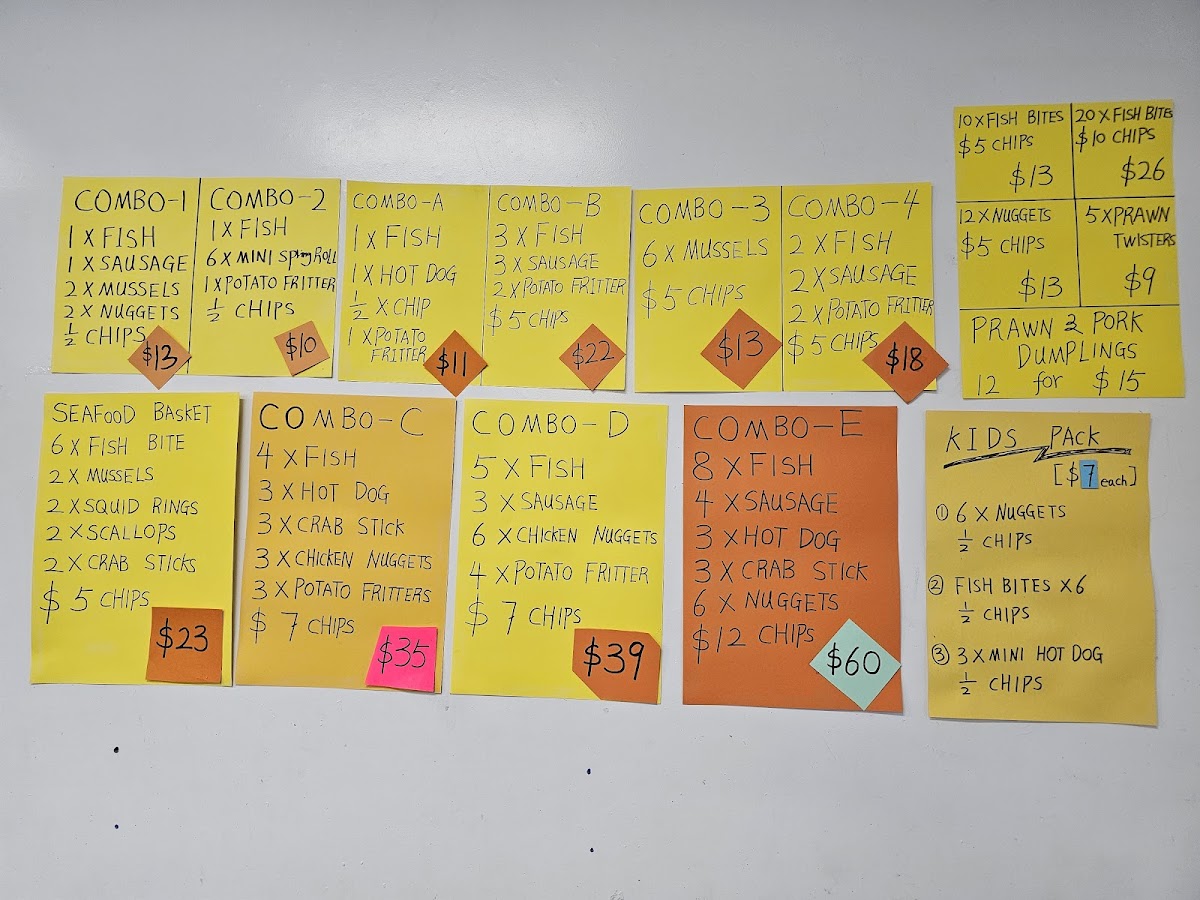 COMBO-1
1 X FISH
1 X SAUSAGE
2 X MUSSELS
2 X NUGGETS
½ CHIPS
$13
COMBO-2
1 X FISH
6 X MINI SpringRoll
1 X POTATO FRITTER
½ CHIPS
$10
COMBO-A
1 X FISH
1 X HOT DOG
½ X CHIP
1 X POTATO
FRITTER
$11
COMBO-B
3 X FISH
3 X SAUSAGE
2 X POTATO FRITTER
$5 CHIPS
$22
COMBO-3
6 X MUSSELS
$5 CHIPS
$13
COMBO-4
2 X FISH
2 X SAUSAGE
2 X POTATO FRITTER
$5 CHIPS
$18
10 X FISH BITES
$5 CHIPS
$13
20 X FISH BITES
$10 CHIPS
$26
12 X NUGGETS
$5 CHIPS
$13
5 X PRAWN
TWISTERS
$9
PRAWN & PORK
DUMPLINGS
12 for $15
SEAFOOD BASKET
6 X FISH BITE
2 X MUSSELS
2 X SQUID RINGS
2 X SCALLOPS
2 X CRAB STICKS
$5 CHIPS
$23
COMBO-C
4 X FISH
3 X HOT DOG
3 X CRAB STICK
3 X CHICKEN NUGGETS
3 X POTATO FRITTERS
$7 CHIPS
$35
COMBO-D
5 X FISH
3 X SAUSAGE
6 X CHICKEN NUGGETS
4 X POTATO FRITTER
$7 CHIPS
$39
COMBO-E
8 X FISH
4 X SAUSAGE
3 X HOT DOG
3 X CRAB STICK
6 X NUGGETS
$12 CHIPS
$60
KIDS PACK
[$7 each]
① 6 X NUGGETS
½ CHIPS
② FISH BITES X6
½ CHIPS
③ 3 X MINI HOT DOG
½ CHIPS